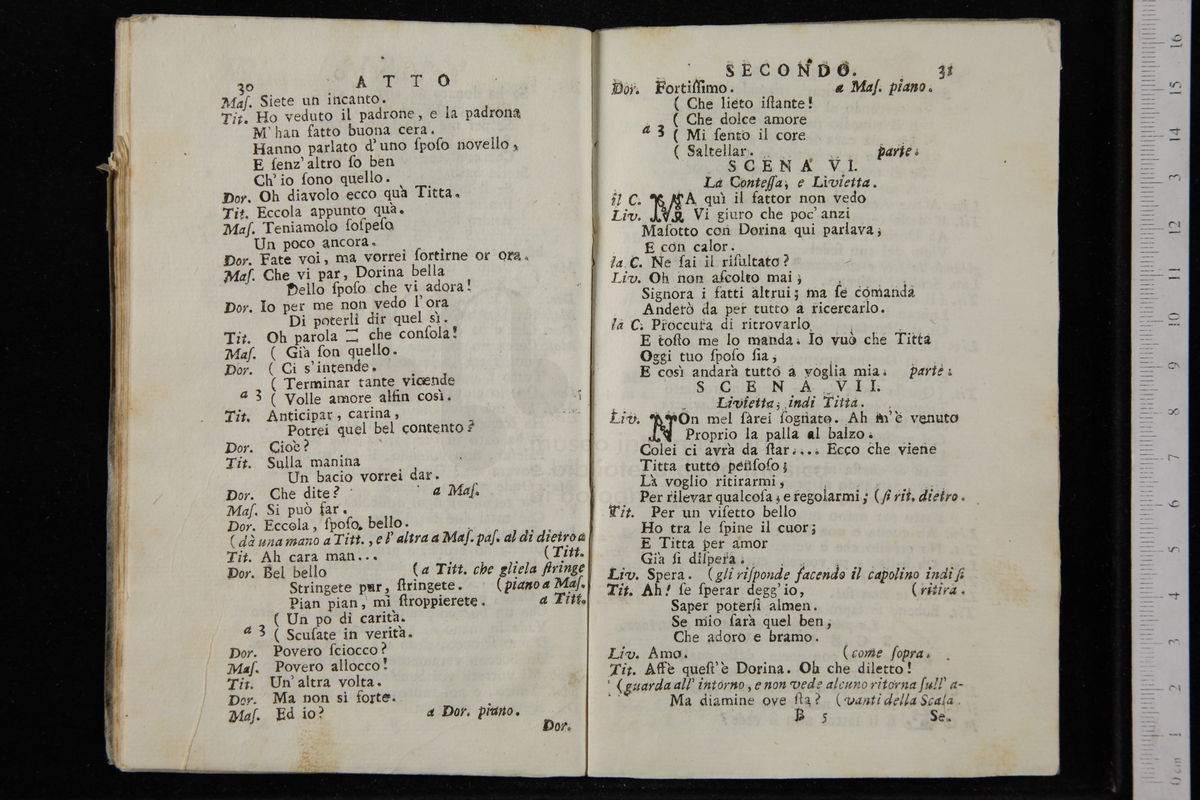 30 ATTO
Maſ. Siete un incanto.
Tit. Ho veduto il padrone, e la padrona
M'han fatto buona cera.
Hanno parlato d'uno ſpoſo novello,
E ſenz'altro ſo ben
Ch'io ſono quello.
Dor. Oh diavolo ecco quà Titta.
Tit. Eccola appunto quà.
Maſ. Teniamolo ſoſpeſo
Un poco ancora.
Dor. Fate voi, ma vorrei ſortirne or ora.
Maſ. Che vi par, Dorina bella
Dello ſpoſo che vi adora!
Dor. Io per me non vedo l'ora
Di poterli dir quel sì.
Tit. Oh parola che conſola!
Maſ. ( Già ſon quello.
Dor. ( Ci s'intende.
( Terminar tante vicende
a 3 ( Volle amore alfin così.
Tit. Anticipar, carina,
Potrei quel bel contento?
Dor. Cioè?
Tit. Sulla manina
Un bacio vorrei dar.
Dor. Che dite? a Maſ.
Maſ. Si può far.
Dor. Eccola, ſpoſo bello.
( dà una mano a Titt., e l'altra a Maſ. paſ. al di dietro a
Tit. Ah cara man... (Titt.
Dor. Bel bello (a Titt. che gliela ſtringe
Stringete pur, ſtringete. (piano a Maſ.
Pian pian, mi ſtroppierete. a Titt.
( Un po di carità.
a 3 ( Scuſate in verità.
Dor. Povero ſciocco?
Maſ. Povero allocco!
Tit. Un'altra volta.
Dor. Ma non sì forte.
Maſ. Ed io? a Dor. piano.
Dor.
SECONDO. 31
Dor. Fortiſſimo. a Maſ. piano.
( Che lieto iſtante!
( Che dolce amore
a 3 ( Mi ſento il core
( Saltellar. parte.
SCENA VI.
La Conteſſa, e Livietta.
il C. MA quì il fattor non vedo
Liv. Vi giuro che poc'anzi
Maſotto con Dorina qui parlava,
E con calor.
la C. Ne ſai il riſultato?
Liv. Oh non aſcolto mai,
Signora i fatti altrui; ma ſe comanda
Anderò da per tutto a ricercarlo.
la C. Proccura di ritrovarlo
E toſto me lo manda. Io vuò che Titta
Oggi tuo ſpoſo ſia,
E così andarà tutto a voglia mia. parte.
SCENA VII.
Livietta, indi Titta.
Liv. NOn mel ſàrei ſognato. Ah m'è venuto
Proprio la palla al balzo.
Colei ci avrà da ſtar.... Ecco che viene
Titta tutto penſoſo;
Là voglio ritirarmi,
Per rilevar qualcoſa, e regolarmi; (ſi rit. dietro.
Tit. Per un viſetto bello
Ho tra le ſpine il cuor;
E Titta per amor
Già ſi diſpera.
Liv. Spera. (gli riſponde facendo il capolino indi ſi
Tit. Ah! ſe ſperar degg'io, (ritira.
Saper poterſi almen.
Se mio ſarà quel ben,
Che adoro e bramo.
Liv. Amo. (come ſopra.
Tit. Affè queſt'è Dorina. Oh che diletto!
(guarda all'intorno, e non vede alcuno ritorna ſull'a-
Ma diamine ove ſta? (vanti della Scala.
B 5 Se.